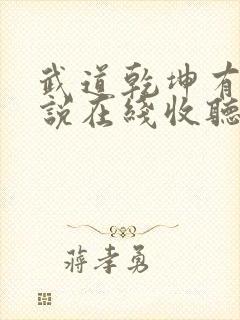 武道乾坤有
說在綫收聽
蔣孝勇